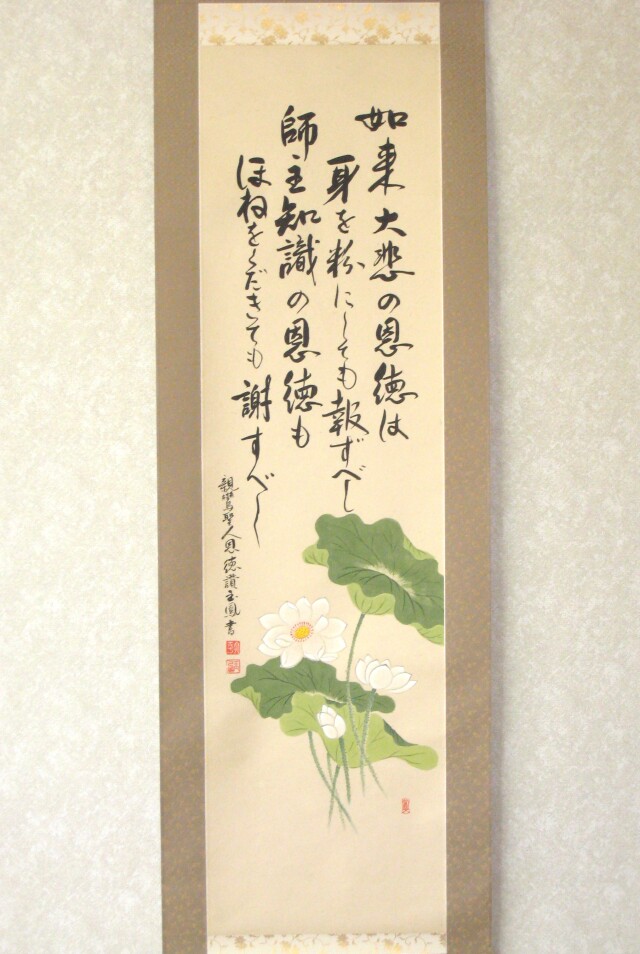 如来大悲の恩徳は
身を粉にしても報ずべし
師主知識の恩徳も
ほねをくだきても謝すべし
親鸞聖人恩徳讃玉鳳書